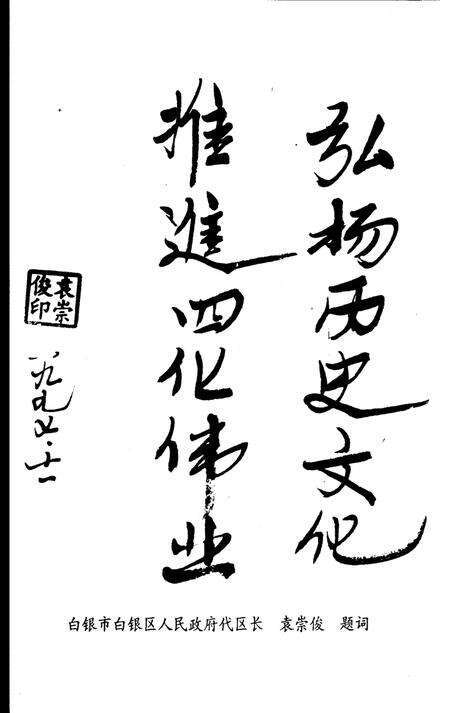 弘扬历史文化
推進四化伟业
袁崇
俊印
一九九〇·十一
白银市白银区人民政府代区长 袁崇俊 题词